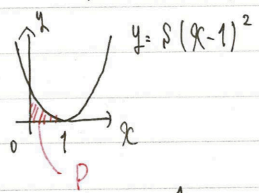 y
y = S(x-1)²
0 1 x
P